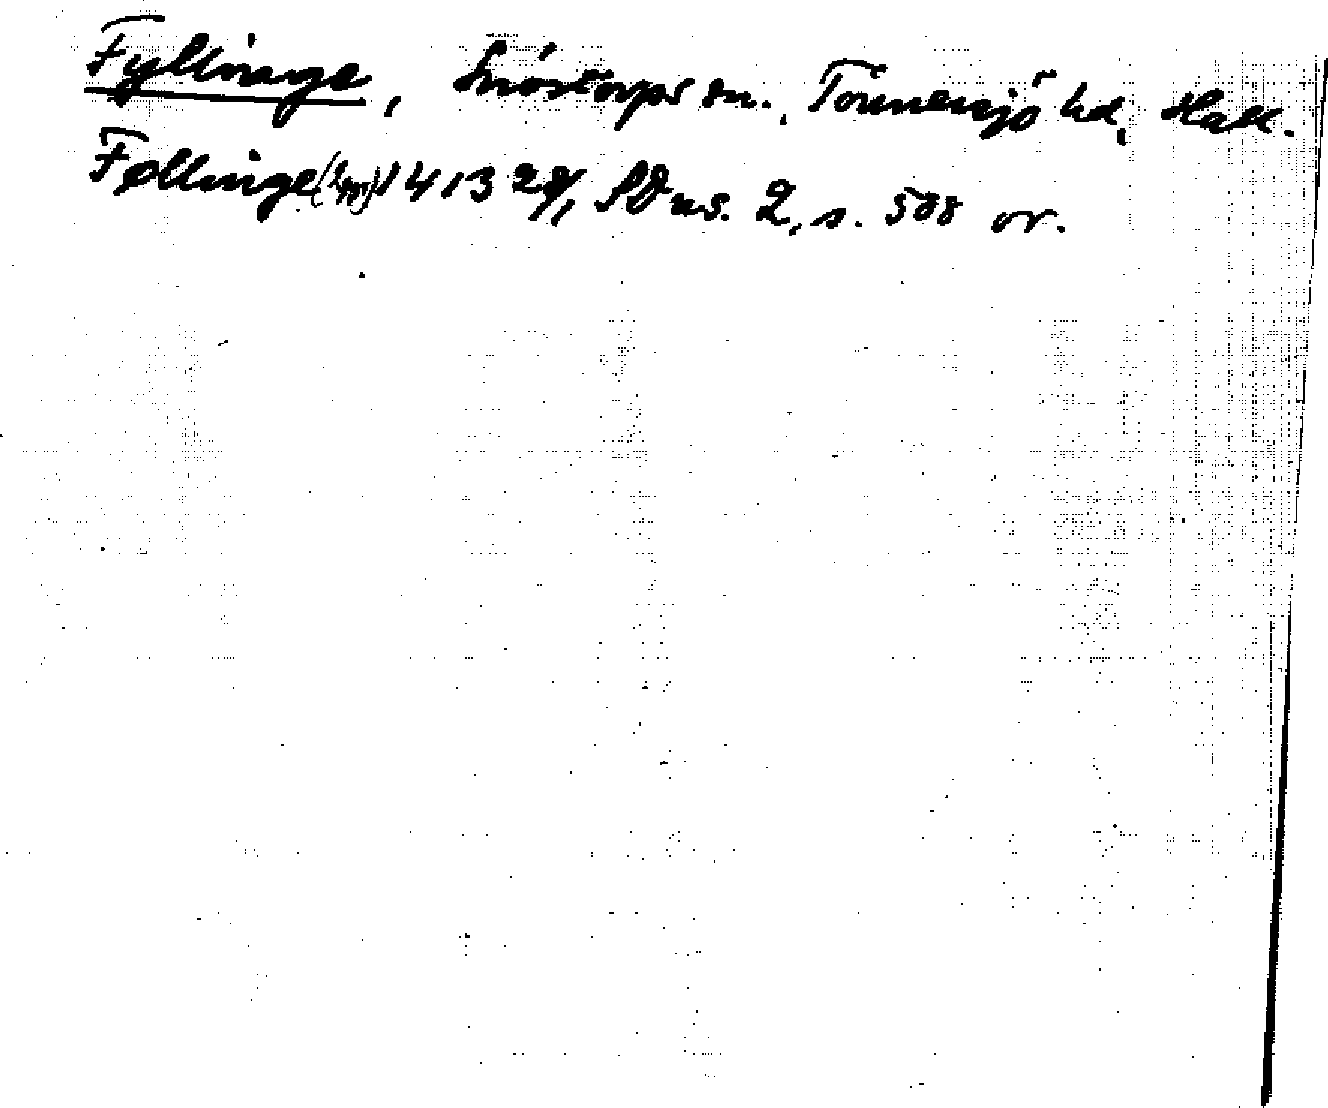 Fyllinge, Snöstorps sn., Tönnersjö hd, Hall.
Føllinge 1413 SD ns. 2, s. 588 or.